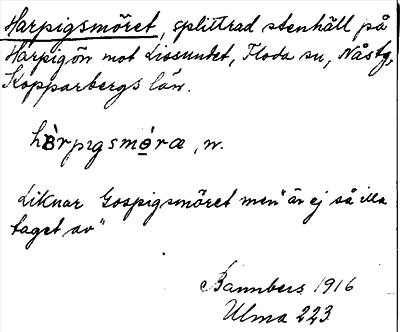 Harpigsmöret, splittrad stenhäll på
Harpigön mot Lissundet, Floda sn, Nåstg,
Kopparbergs län.
hàrpıgsmọ́ræ, n.
Liknar Gospigsmöret men "är ej så illa
taget av"
Bannbers 1916
Ulma 223